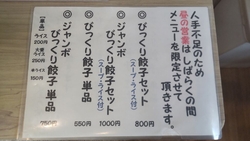 人手不足のため
昼の営業はしばらくの間
メニューを限定させて
頂きます。
◎びっくり餃子セット
(スープ・ライス付)
800円
◎ジャンボ
びっくり餃子セット
(スープ・ライス付)
1000円
◎びっくり餃子 単品
550円
◎ジャンボ
びっくり餃子 単品
750円
(単品)
ライス
200円
大盛ライス
250円
半ライス
150円